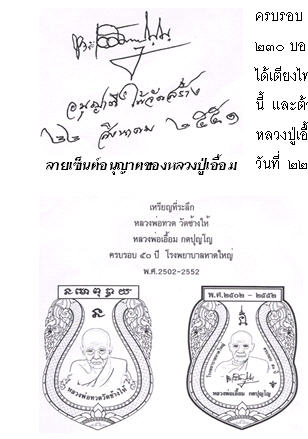 อนุญาตให้จัดสร้าง
๒๒ สิงหาคม ๒๕๕๑
ลายเซ็นต์อนุญาตของหลวงปู่เอื้อม
ครบรอบ
๒๓๐ บอ
ได้เตียงไฟ
นี้ และด้
หลวงปู่เอื้
วันที่ ๒๒
เหรียญที่ระลึก
หลวงพ่อทวด วัดช้างให้
หลวงพ่อเอื้อม กตปุญโญ
ครบรอบ ๕๐ ปี โรงพยาบาลหาดใหญ่
พ.ศ.2502-2552
หลวงพ่อทวดวัดช้างให้
พ.ศ.๒๕๐๒ - ๒๕๕๒
หลวงพ่อเอื้อม กตปุญโญ